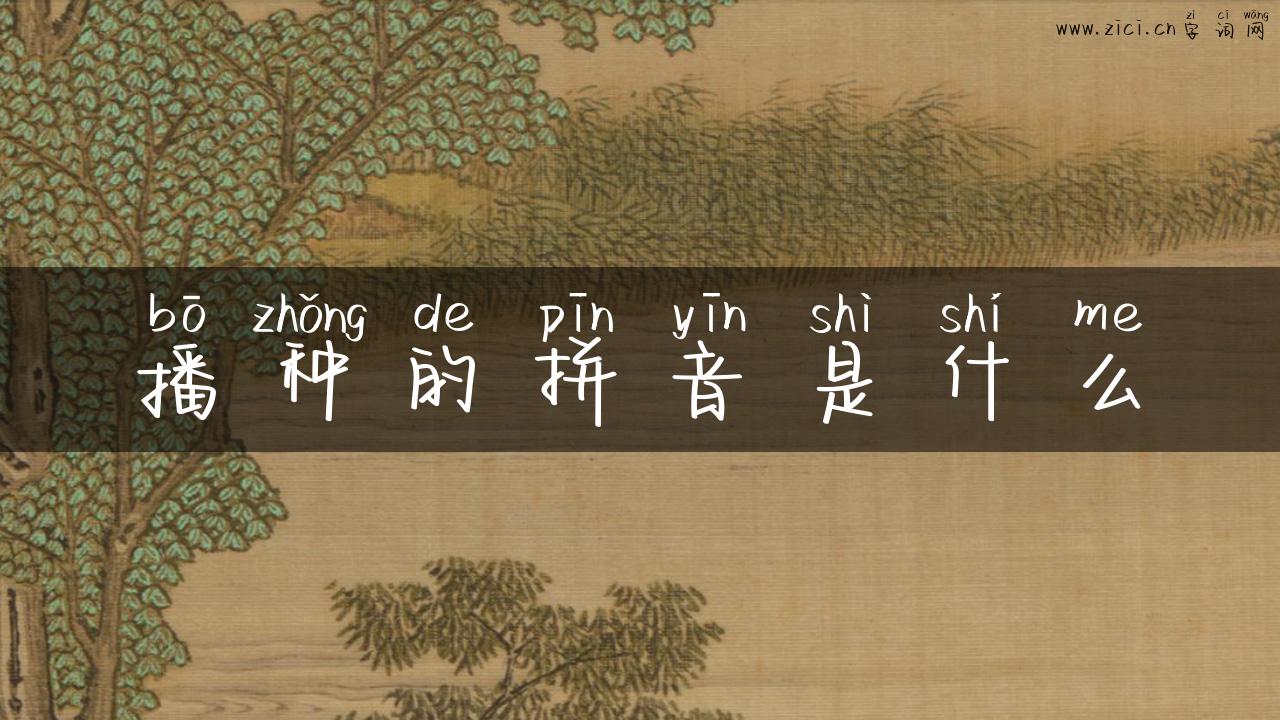 zì cí wǎng
www.zici.cn字词网
bō zhǒng de pīn yīn shì shí me
播种的拼音是什么